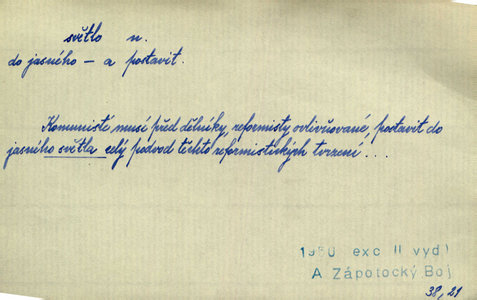 světlo n.
do jasného – a postavit.
Komunisté musí před dělníky, reformisty ovlivňované, postavit do
jasného světla celý podvod těchto reformistických tvrzení...
1950 exc II vyd
A Zápotocký, Boj
38, 21